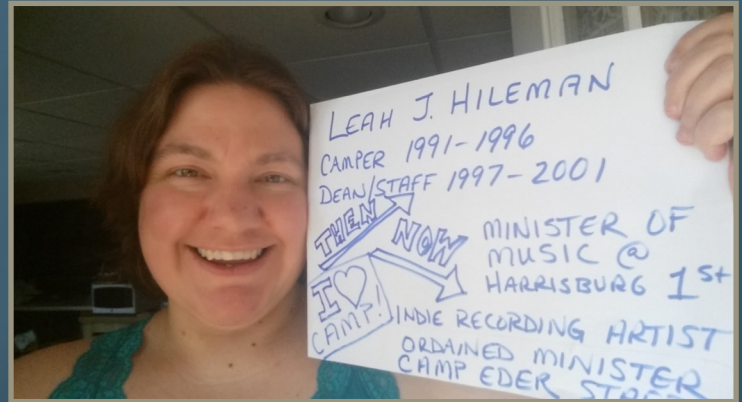 LEAH J. HILEMAN
CAMPER 1991-1996
DEAN/STAFF 1997-2001
THEN
NOW
MINISTER OF
MUSIC @
HARRISBURG 1st
I ♡
CAMP!
INDIE RECORDING ARTIST
ORDAINED MINISTER
CAMP EDER STAFF